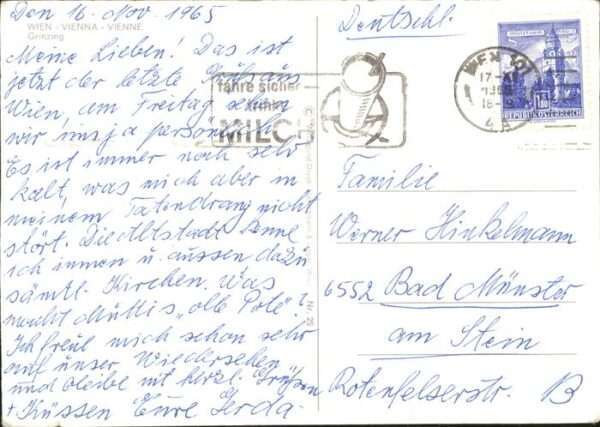 Den 16. Nov. 1965
WIEN - VIENNA - VIENNE
Grinzing
Meine Lieben! Das ist
jetzt der letzte Gruß aus
Wien, am Freitag sehen
wir uns ja persönlich.
Es ist immer noch sehr
kalt, was mich aber in
meinem Tatendrang nicht
stört. Die Altstadt kenne
ich innen u. aussen dazu
sämtl. Kirchen. Was
macht Muttis „olle Pote"?
Ich freue mich schon sehr
auf unser Wiedersehen
und bleibe mit herzl. Grüßen
+ Küssen Eure Gerda.
Deutschl.
fahre sicher
trinke
MILCH
WIEN 101
17.XI
18-
4A
REPUBLIK ÖSTERREICH
Nr. 25
Familie
Werner Hinkelmann
6552 Bad Münster
am Stein
Rotenfelserstr. B